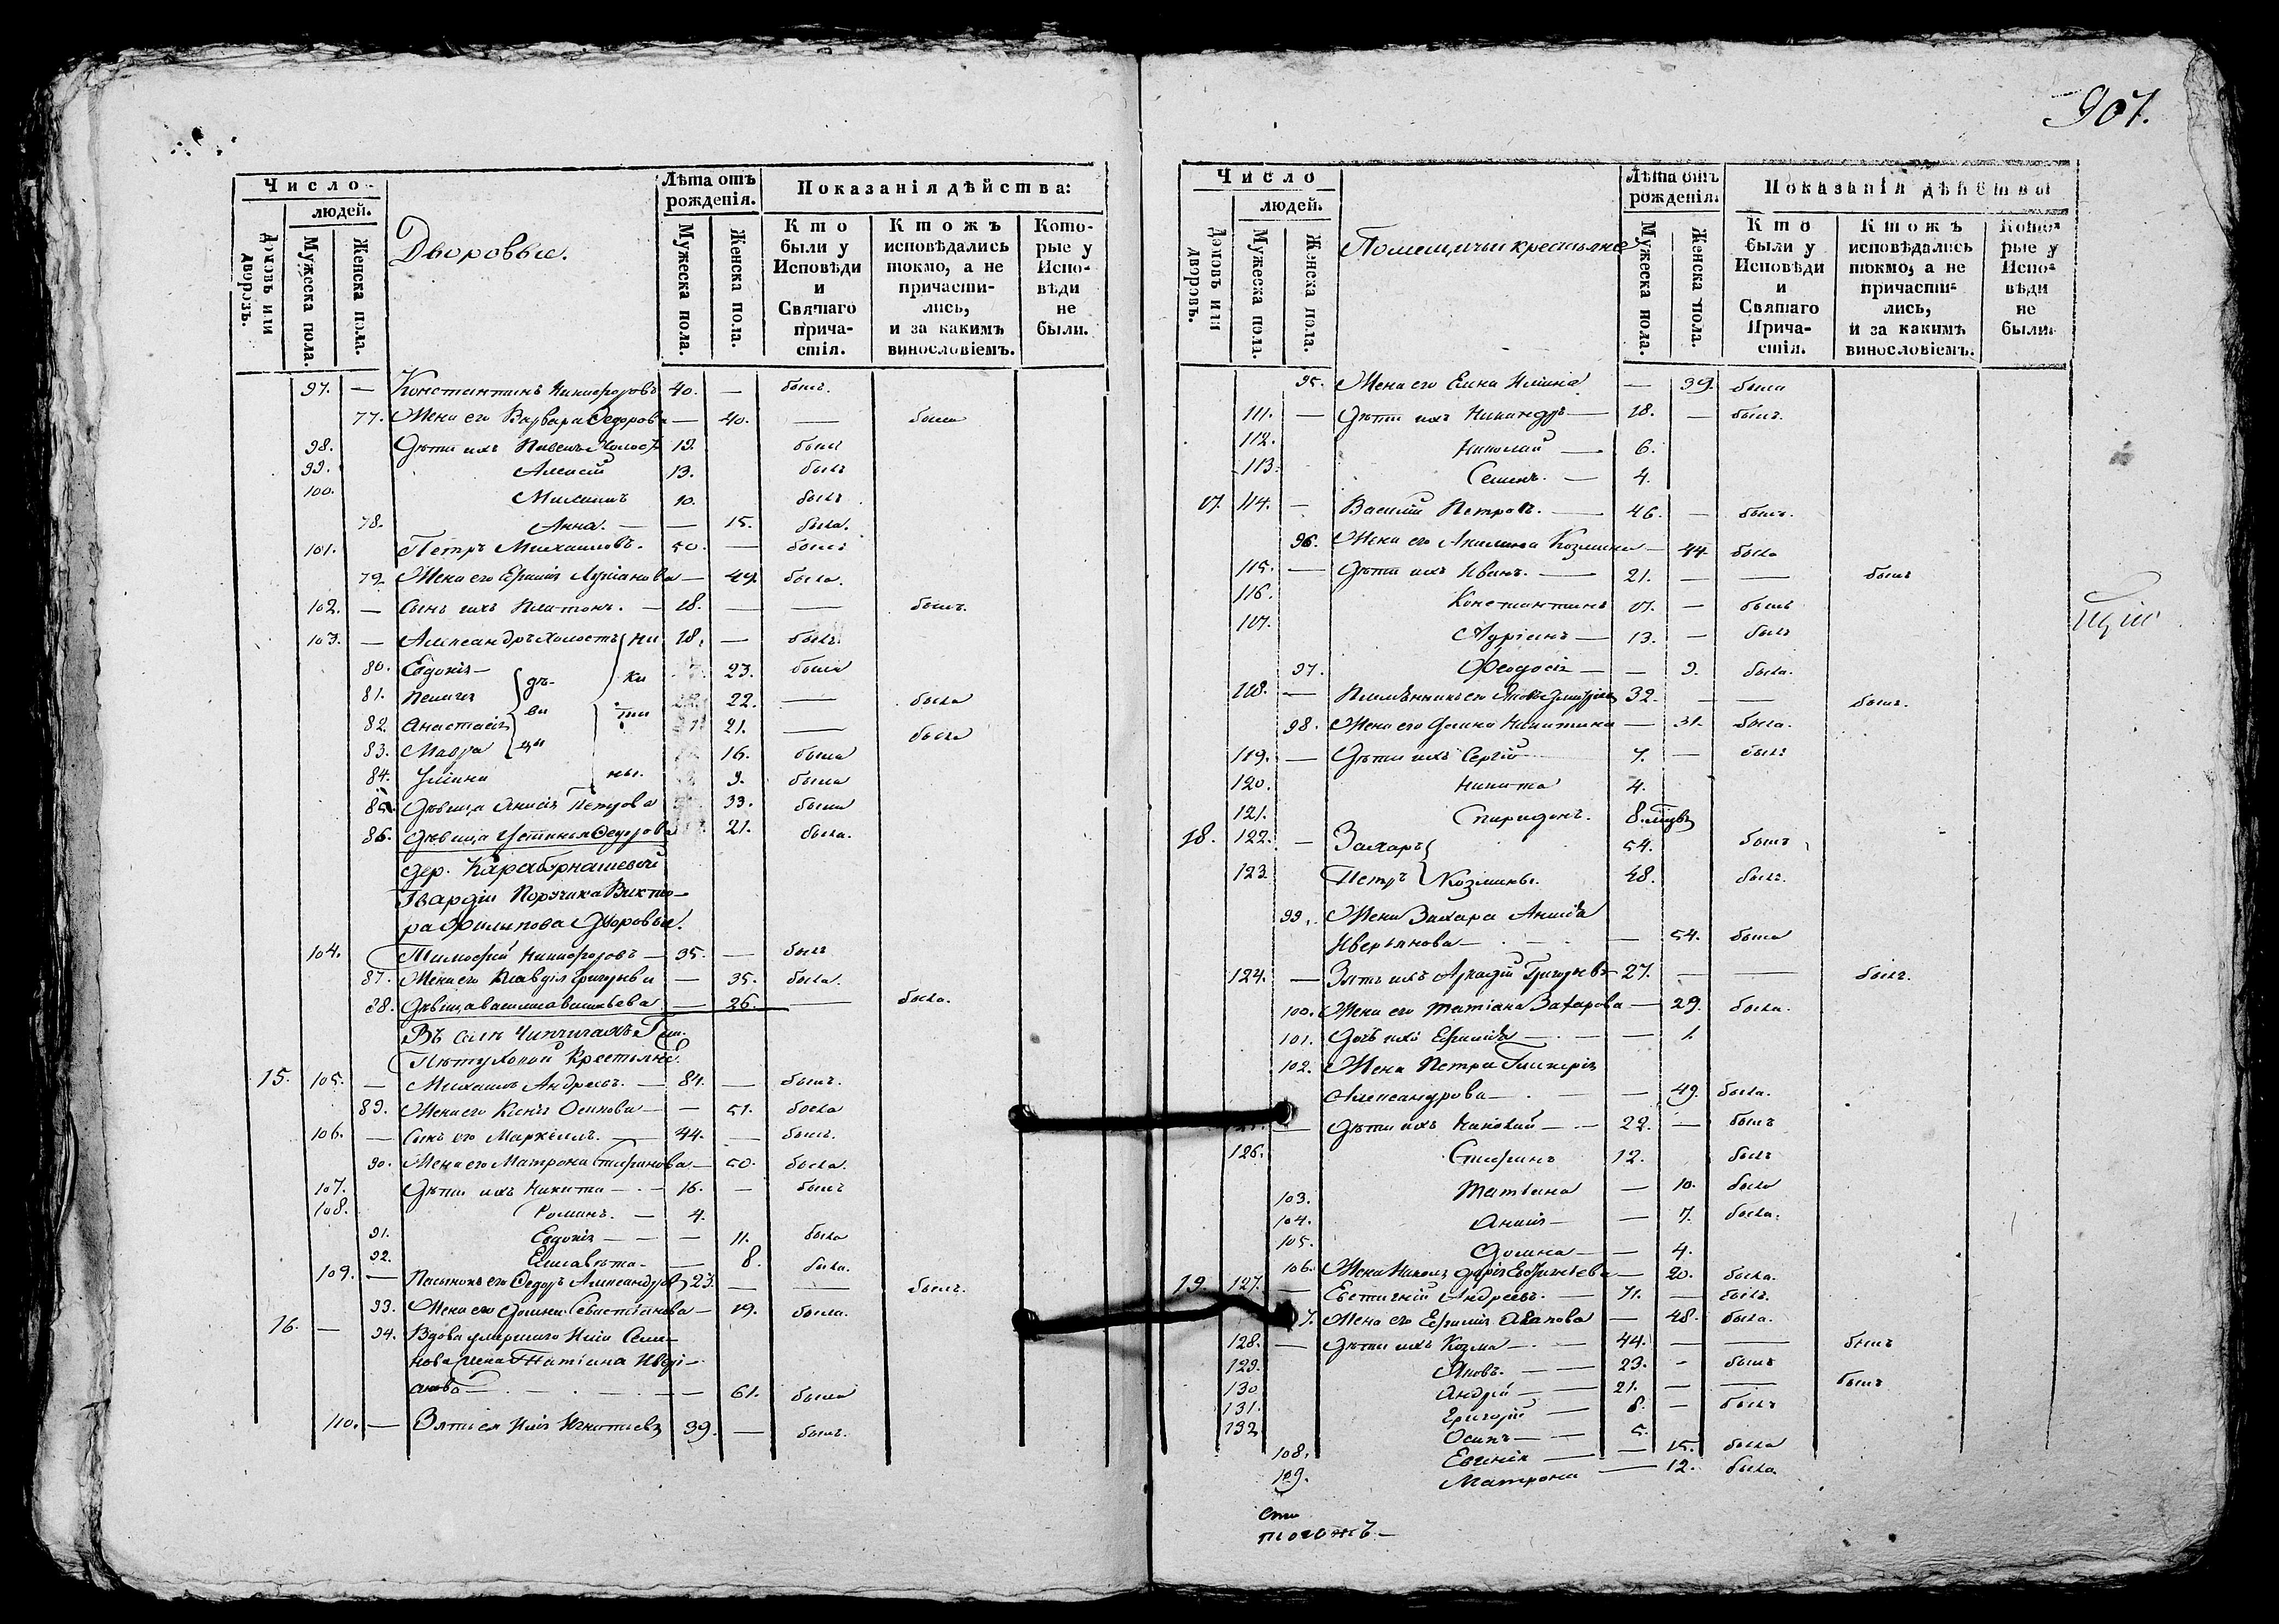 Число
людей.
Домовъ или дворовъ.
Мужеска пола.
Женска пола.
Дворовые.
Лѣта отъ рожденія.
Мужеска пола.
Женска пола.
Показанія дѣйства:
Кто были у Исповѣди и Святаго причастія.
Ктожъ исповѣдались токмо, а не причастились, и за какимъ винословіемъ.
Которые у Исповѣди не были.
97. — Константинъ Никифоровъ 40. — былъ.
77. Жена его Варвара Федорова — 40. — была
98. Дѣти ихъ Павелъ Холостъ 19. былъ
99. Алексѣй 13. былъ
100. Михаилъ 10. былъ
78. Анна. — — 15. была.
101. Петръ Михаиловъ. 50. — былъ
79. Жена его Ефимія — 49. была.
102. — Сынъ ихъ Платонъ. — 28. — — былъ.
103. — Александръ холостъ 18. — былъ.
80. Евдокія — 23. была
81. Пелагея 22. — была
82. Анастасія 21. — была
83. Мавра 16. была
84. 9. была
дѣвицы
85. Дѣвица Анисія Петрова 33. была
86. Дѣвица Устинья Федорова 21. была.
дер. Карабурнашевой
Гвардіи Поручика Викто-
ра Филипова Дворовые.
104. Тимофей Никифоровъ — 35. — былъ
87. Жена его Клавдія — 35. была.
88. Дѣвица Василиса Васильева — 26. — была.
Въ селѣ
Пѣтуховой Крестьяне.
15. 105. — Михаилъ Андреевъ. — 84. — былъ.
89. Жена его Осипова — — 51. была
106. — Сынъ его — 44. — былъ.
90. Жена его Матрона Стефанова — 50. была.
107. Дѣти ихъ Никита — 16. — былъ
108. Романъ. — 4.
91. Евдокія — — — 11. была
92. Елисавета — 8. была.
109. — Пасынокъ его Федоръ Александровъ 23. — — былъ.
93. Жена его Домна Севастіанова — 19. была.
16. — 94. Вдова умершаго Ильи Семе-
нова жена Татіана
— 61. была
110. — Зять ея Илья Игнатьевъ 39. — былъ.
907.
Число
людей.
Домовъ или дворовъ.
Мужеска пола.
Женска пола.
Помещичьи крестьяне
Лѣта отъ рожденія.
Мужеска пола.
Женска пола.
Показанія дѣйства
Кто были у Исповѣди и Святаго Причастія.
Ктожъ исповѣдались токмо, а не причастились, и за какимъ винословіемъ.
Которые у Исповѣди не были.
95. Жена его Елена Ильина — 39. была
111. — Дѣти ихъ Никандръ — 18. — былъ.
112. Николай — 6.
113. Семенъ. — 4.
17. 114. — Василій Петровъ. — 46. — былъ.
96. Жена его Акилина Козмина — 44. была
115. — Дѣти ихъ Иванъ. — 21. — — былъ
116. Константинъ 17. — былъ
117. Адріанъ — 13. — былъ
97. Феодосія — — 9. была.
118. — Племянникъ его Яковъ Дмитріевъ 32. — — былъ.
98. Жена его Домна Никитина — 31. была.
119. — Дѣти ихъ Сергій 7. — былъ
120. Никита 4.
121. Спиридонъ. 8. мцвъ
18. 122. — Захаръ 54. былъ
123. Петръ Козмины. 48. былъ.
99. Жена Захара Анисія
Аверьянова — 54. была
124. — Зять ихъ Аркадій Григорьевъ 27. — — былъ.
100. Жена его Татіана Захарова — 29. была.
101. Дочь ихъ Ефимія — — 1.
102. Жена Петра Гликерія
Александрова — — 49. была.
— Дѣти ихъ Николай — 22. — былъ
126. Стефанъ 12. былъ
103. Татіана — 10. была
104. Анисія — — 7. была.
105. Домна — — 4.
106. Жена Дарія — 20. была.
19. 127. — Евстигній Андреевъ. — 71. — былъ.
7. Жена его Ефимія — 48. была.
128. — Дѣти ихъ Козма — 44. — — былъ
129. Яковъ. — 23. — былъ
130 Андрей — 21. — — былъ
131. Григорій — 8. — былъ
132. Осипъ — 5.
108. Евгенія — — 15. была
109. Матрона — 12. была.